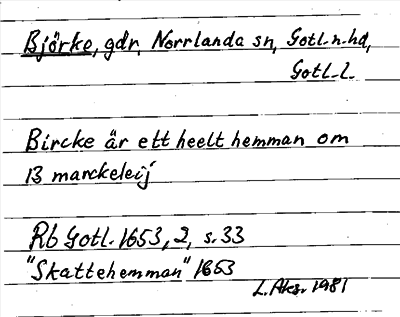 Björke, gdr, Norrlanda sn, Gotl. n. hd,
Gotl. l.
Bircke är ett heelt hemman om
13 marckeleij
Rb Gotl. 1653, 2, s. 33
"Skattehemman" 1653
L. Aks. 1981